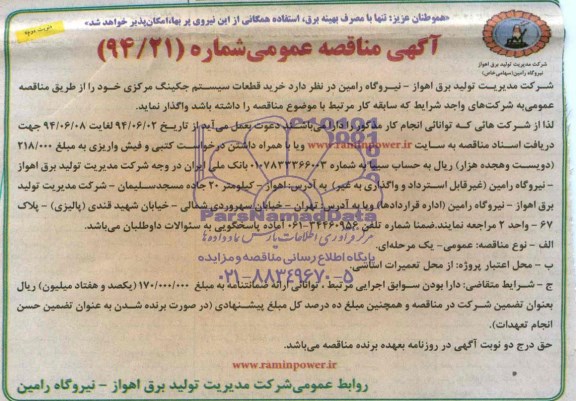 «هموطنان عزیز: تنها با مصرف بهینه برق، استفاده همگانی از این نیروی پر بهاء،امکان‌پذیر خواهد شد»
نوبت دوم
آگهی مناقصه عمومی‌شماره (۹۴/۲۱)
شرکت مدیریت تولید برق اهواز
نیروگاه رامین(سهامی خاص)
شرکت مدیریت تولید برق اهواز – نیروگاه رامین در نظر دارد خرید قطعات سیستم جکینگ مرکزی خود را از طریق مناقصه
عمومی‌به شرکت‌های واجد شرایط که سابقه کار مرتبط با موضوع مناقصه را داشته باشد واگذار نماید.
لذا از شرکت هائی که توانائی انجام کار مذکور را دارا می‌باشند، دعوت بعمل می‌آید از تاریخ ۹۴/۰۶/۰۲ لغایت ۹۴/۰۶/۰۸ جهت
دریافت اسناد مناقصه به سایت www.raminpower.ir ویا با همراه داشتن درخواست کتبی و فیش واریزی به مبلغ ۲۱۸/۰۰۰
(دویست وهجده هزار) ریال به حساب سیبا به شماره ۰۱۰۷۸۳۳۳۶۶۰۰۳ بانک ملی ایران در وجه شرکت مدیریت تولید برق اهواز
– نیروگاه رامین (غیرقابل استرداد و واگذاری به غیر) به آدرس: اهواز – کیلومتر ۲۰ جاده مسجدسلیمان – شرکت مدیریت تولید
برق اهواز – نیروگاه رامین (اداره قراردادها) ویا به آدرس: تهران – خیابان سهروردی شمالی – خیابان شهید قندی (پالیزی) – پلاک
۶۷ – واحد ۲ مراجعه نمایند.ضمنا شماره تلفن ۳۴۴۶۰۹۵۶-۰۶۱ آماده پاسخگویی به سئوالات داوطلبان می‌باشد.
الف – نوع مناقصه: عمومی– یک مرحله‌ای.
ب – محل اعتبار پروژه: از محل تعمیرات اساسی.
ج – شرایط متقاضی: دارا بودن سوابق اجرایی مرتبط ، توانائی ارائه ضمانتنامه به مبلغ ۱۷۰/۰۰۰/۰۰۰ (یکصد و هفتاد میلیون) ریال
بعنوان تضمین شرکت در مناقصه و همچنین مبلغ ده درصد کل مبلغ پیشنهادی (در صورت برنده شدن به عنوان تضمین حسن
انجام تعهدات).
حق درج دو نوبت آگهی در روزنامه بعهده برنده مناقصه می‌باشد.
www.raminpower.ir
روابط عمومی‌شرکت مدیریت تولید برق اهواز – نیروگاه رامین
ParsNamadData
مرکز فرآوری اطلاعات پارس نماد داده ها
پایگاه اطلاع رسانی مناقصه و مزایده
۰۲۱-۸۸۳۴۹۶۷۰-۵